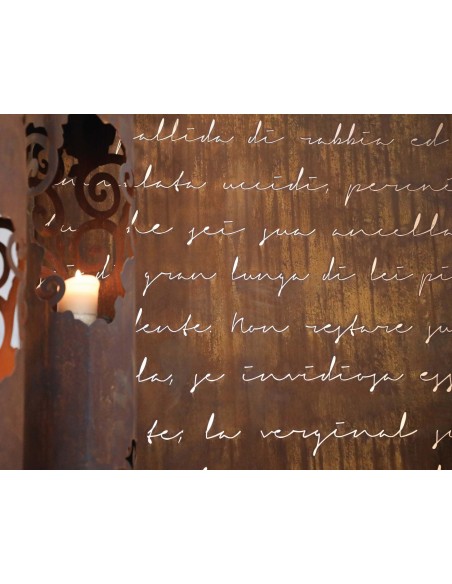 pallida di rabbia ed
uccidi, perché
che sei sua ancella
di gran lunga di lei pi
Non restare su
la, se invidiosa ess
te, la verginal